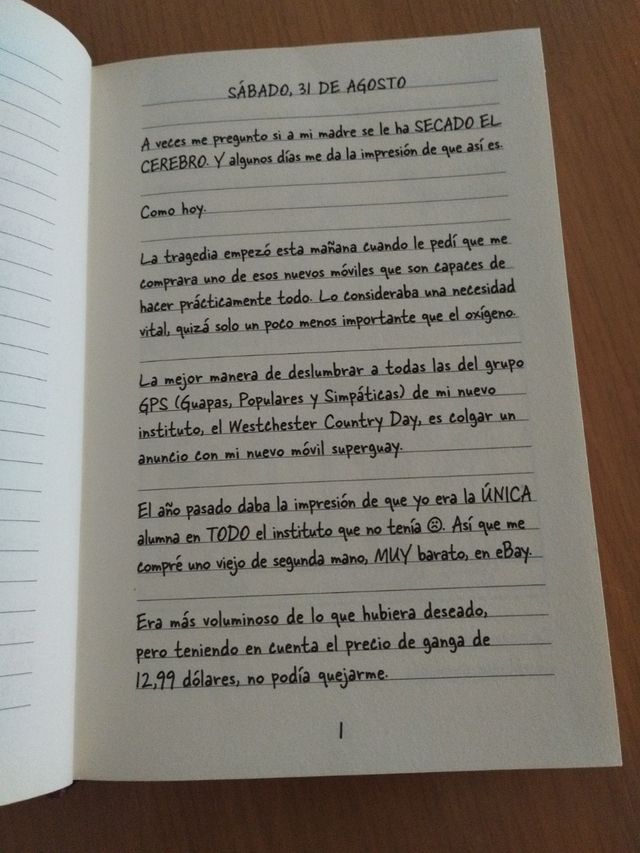 SÁBADO, 31 DE AGOSTO
A veces me pregunto si a mi madre se le ha SECADO EL
CEREBRO. Y algunos días me da la impresión de que así es.
Como hoy.
La tragedia empezó esta mañana cuando le pedí que me
comprara uno de esos nuevos móviles que son capaces de
hacer prácticamente todo. Lo consideraba una necesidad
vital, quizá solo un poco menos importante que el oxígeno.
La mejor manera de deslumbrar a todas las del grupo
GPS (Guapas, Populares y Simpáticas) de mi nuevo
instituto, el Westchester Country Day, es colgar un
anuncio con mi nuevo móvil superguay.
El año pasado daba la impresión de que yo era la ÚNICA
alumna en TODO el instituto que no tenía ☹. Así que me
compré uno viejo de segunda mano, MUY barato, en eBay.
Era más voluminoso de lo que hubiera deseado,
pero teniendo en cuenta el precio de ganga de
12,99 dólares, no podía quejarme.
1